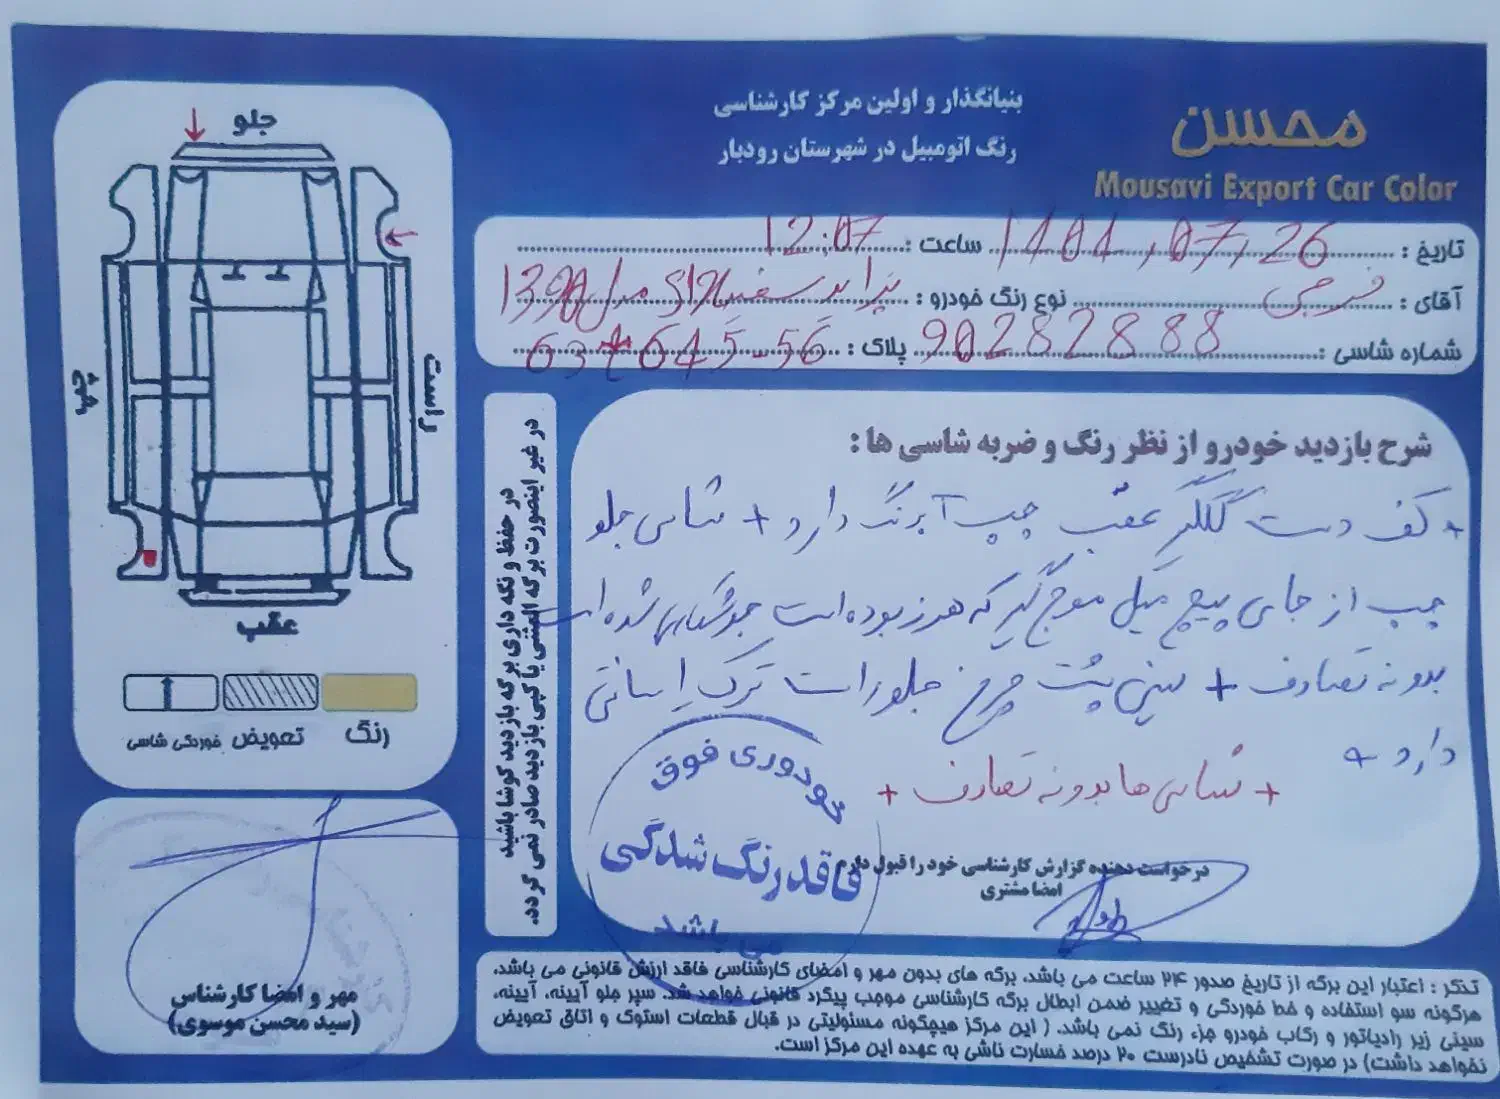 محسن
Mousavi Export Car Color
بنیانگذار و اولین مرکز کارشناسی
رنگ اتومبیل در شهرستان رودبار
تاریخ : 1404,07,26 ساعت : 12:07
آقای : فرجی نوع رنگ خودرو : پراید سفید مدل 1390
شماره شاسی : 90282888 پلاک : 56 - 645 63
شرح بازدید خودرو از نظر رنگ و ضربه شاسی ها :
+ کف دست گلگیر عقب چپ آبرنگ دارد + شاسی جلو
چپ از جای پیچ میل موج گیر که هرز بوده است جوشکاری شده است
بدونه تصادف + سینی پشت چرخ جلو راست ترک اسانتی
دارد +
+ شاسی ها بدونه تصادف +
خودوری فوق
فاقد رنگ شدگی
می باشد
درخواست دهنده گزارش کارشناسی خود را قبول دارم
امضا مشتری
در حفظ و نگه داری برگه بازدید کوشا باشید
در غیر اینصورت برگه المثنی یا کپی بازدید صادر نمی گردد.
جلو
چپ
راست
عقب
رنگ
تعویض
خوردگی شاسی
مهر و امضا کارشناس
(سید محسن موسوی)
تذکر : اعتبار این برگه از تاریخ صدور ۲۴ ساعت می باشد. برگه های بدون مهر و امضای کارشناسی فاقد ارزش قانونی می باشد.
هرگونه سو استفاده و خط خوردگی و تغییر ضمن ابطال برگه کارشناسی موجب پیگرد قانونی خواهد شد. سپر جلو آیینه، آیینه،
سینی زیر رادیاتور و رکاب خودرو جزء رنگ نمی باشد. ( این مرکز هیچگونه مسئولیتی در قبال قطعات استوک و اتاق تعویض
نخواهد داشت) در صورت تشخیص نادرست ۲۰ درصد خسارت ناشی به عهده این مرکز است.